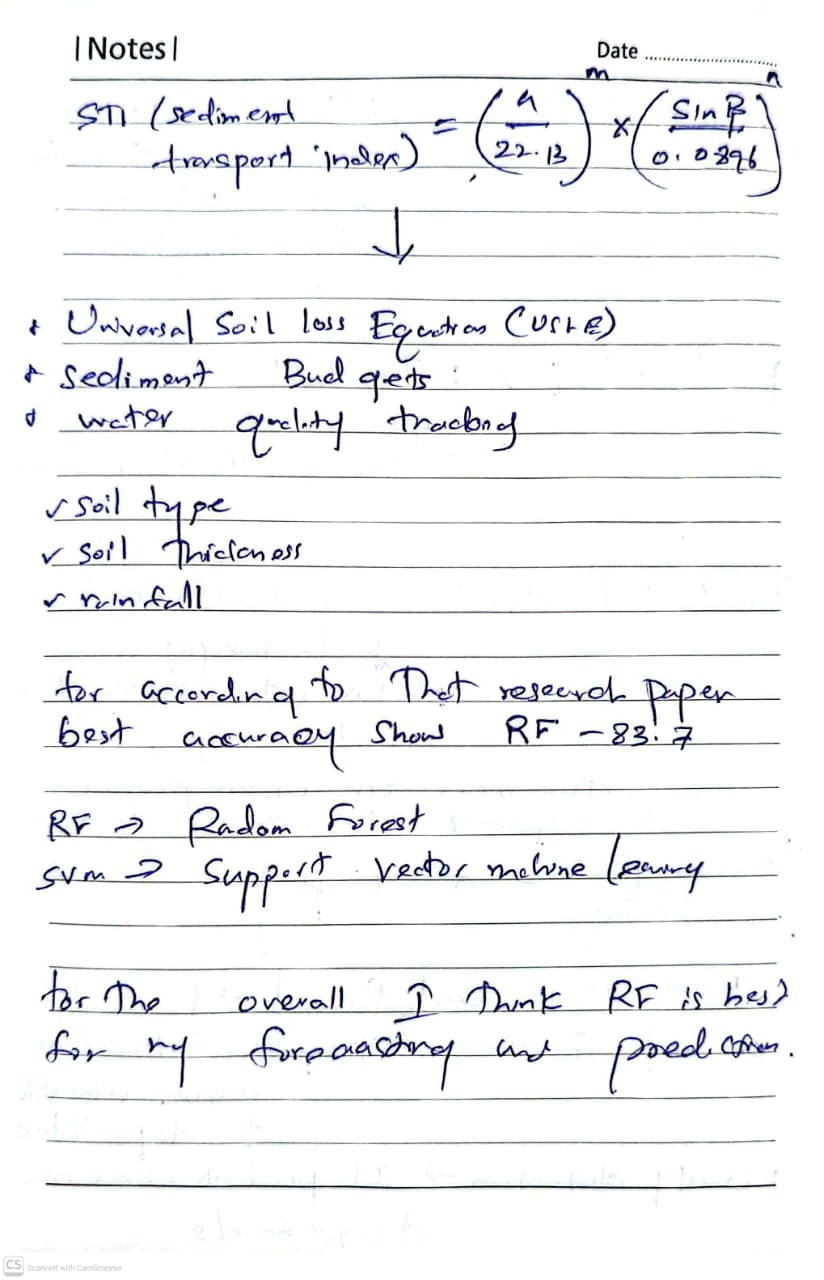 | Notes |
Date ................................
STI (sediment transport index) = (a / 22.13)^m × (Sin β / 0.0896)^n
↓
* Universal Soil loss Equation (USLE)
* Sediment Budgets
* water quality tracking
✓ soil type
✓ soil Thickness
✓ rainfall
for according to That research paper
best accuracy Show RF - 83.7
RF → Radom Forest
SVM → Support vector mchine learning
for The overall I Think RF is best
for my forecasting and prediction.
CS Scanned with CamScanner